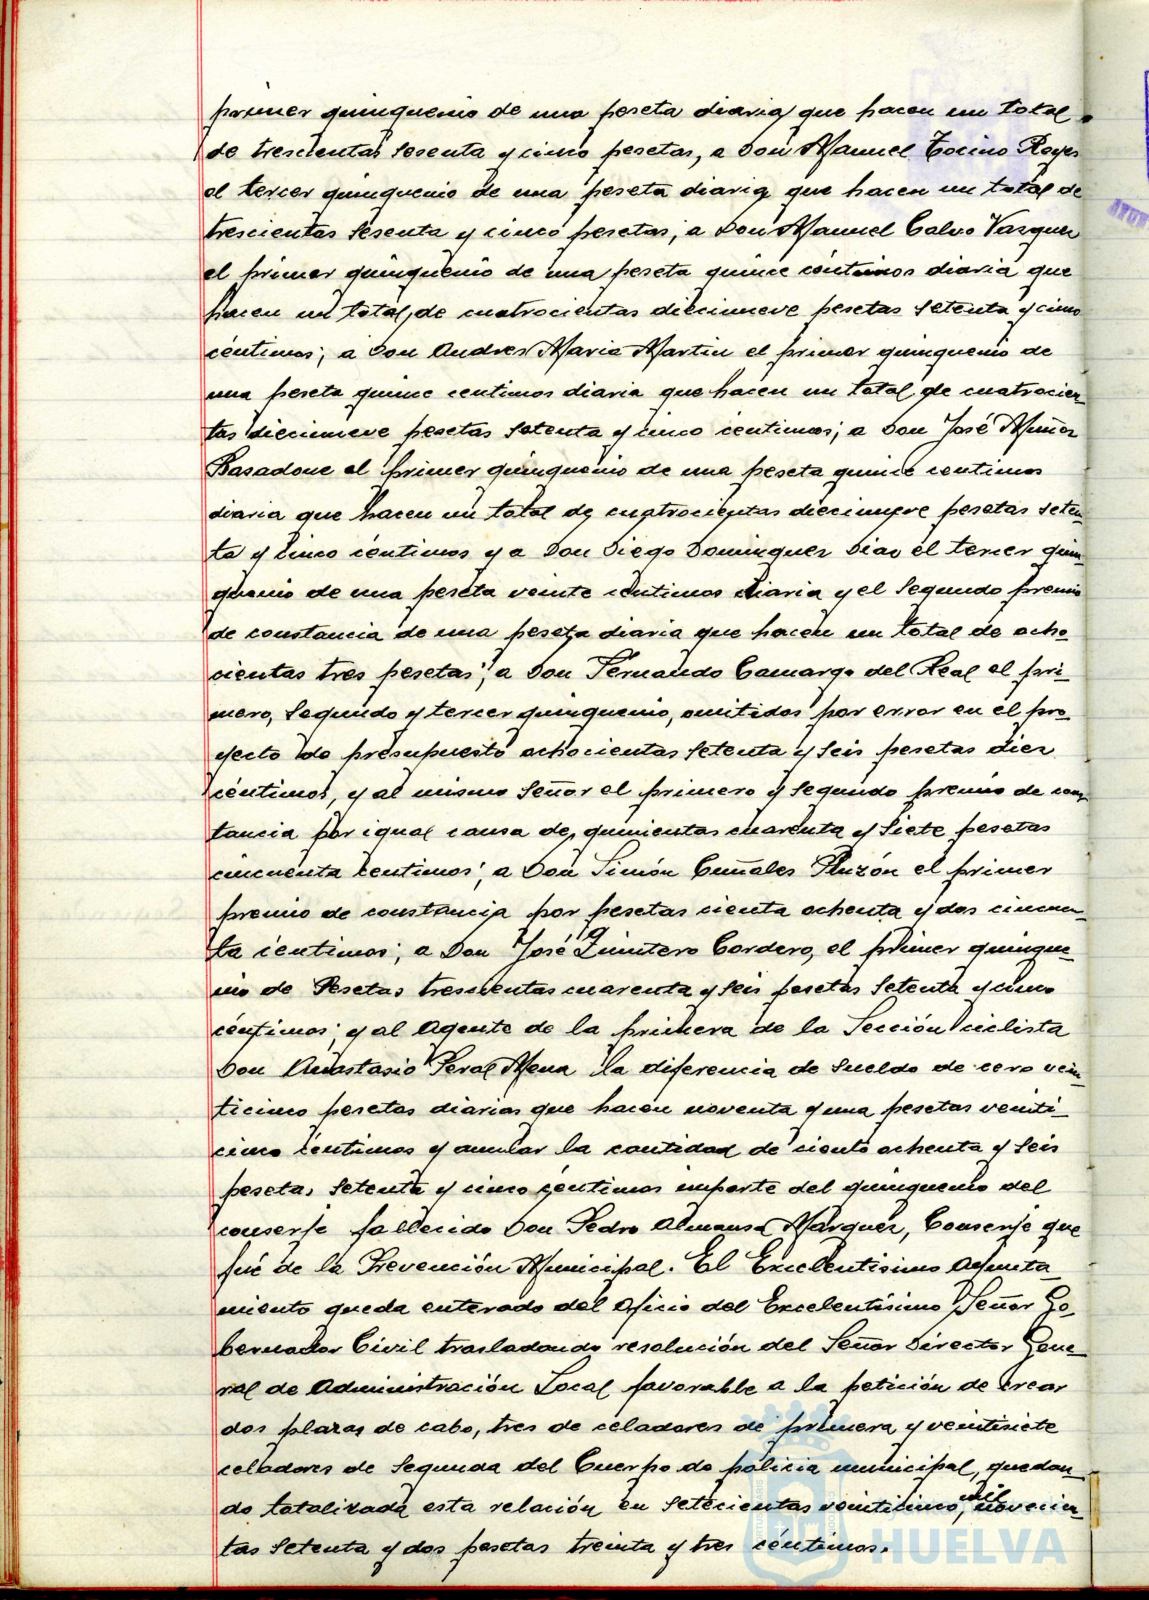 primer quinquenio de una peseta diaria que hacen un total
de trescientas sesenta y cinco pesetas, a Don Manuel Tocino Reyes
el tercer quinquenio de una peseta diaria que hacen un total de
trescientas sesenta y cinco pesetas, a Don Manuel Calvo Vazquez
el primer quinquenio de una peseta quince céntimos diaria que
hacen un total, de cuatrocientas diecinueve pesetas setenta y cinco
céntimos; a Don Andres Maria Martin el primer quinquenio de
una peseta quince centimos diaria que hacen un total de cuatrocien-
tas diecinueve pesetas setenta y cinco céntimos; a Don José Muñoz
Basadone el primer quinquenio de una peseta quince centimos
diaria que hacen un total de cuatrocientas diecinueve pesetas seten-
ta y cinco céntimos y a Don Diego Dominguez Diaz el tercer quin-
quenio de una peseta veinte céntimos diaria y el segundo premio
de constancia de una peseta diaria que hacen un total de ocho-
cientas tres pesetas; a Don Fernando Camargo del Real el pri-
mero, segundo y tercer quinquenio, omitidos por error en el pro-
yecto de presupuesto ochocientas setenta y seis pesetas diez
céntimos, y al mismo Señor el primero y segundo premio de cons-
tancia por igual causa de, quinientas cuarenta y siete pesetas
cincuenta centimos; a Don Simón Cumales Pinzón el primer
premio de constancia por pesetas cienta ochenta y dos cincuen-
ta céntimos; a Don José Quintero Cordero, el primer quinque-
nio de Pesetas trescientas cuarenta y seis pesetas setenta y cinco
céntimos; y al Agente de la primera de la Sección ciclista
Don Anastasio Peral Mena la diferencia de sueldo de cero vein-
ticinco pesetas diarias que hacen noventa y una pesetas veinti-
cinco céntimos y anular la cantidad de ciento ochenta y seis
pesetas setenta y cinco céntimos importe del quinquenio del
conserje fallecido Don Pedro Almansa Marquez, Conserje que
fué de la Prevención Municipal. El Excelentísimo Ayunta-
miento queda enterado del oficio del Excelentísimo Señor Go-
bernador Civil trasladando resolución del Señor Director Gene-
ral de Administración Local favorable a la petición de crear
dos plazas de cabo, tres de celadores de primera y veintisiete
celadores de segunda del Cuerpo de policia municipal, quedan-
do totalizada esta relación en setecientas veinticinco, mil novecien-
tas setenta y dos pesetas treinta y tres céntimos.
HUELVA